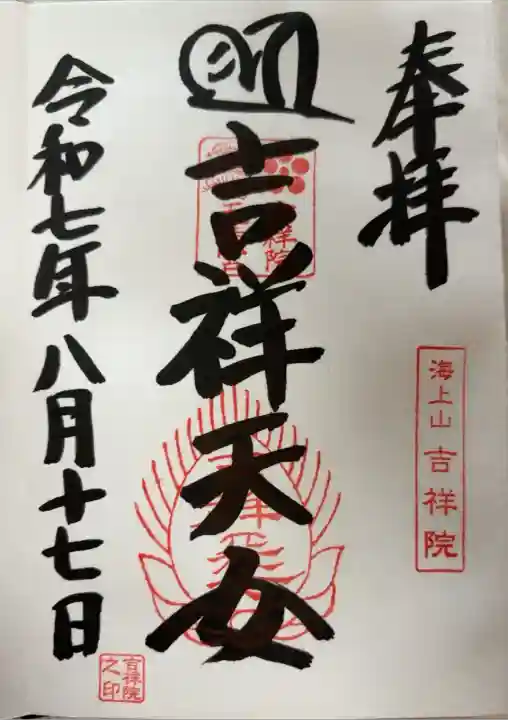 奉拝
海上山 吉祥院
吉祥天女
令和七年八月十七日
吉祥院之印